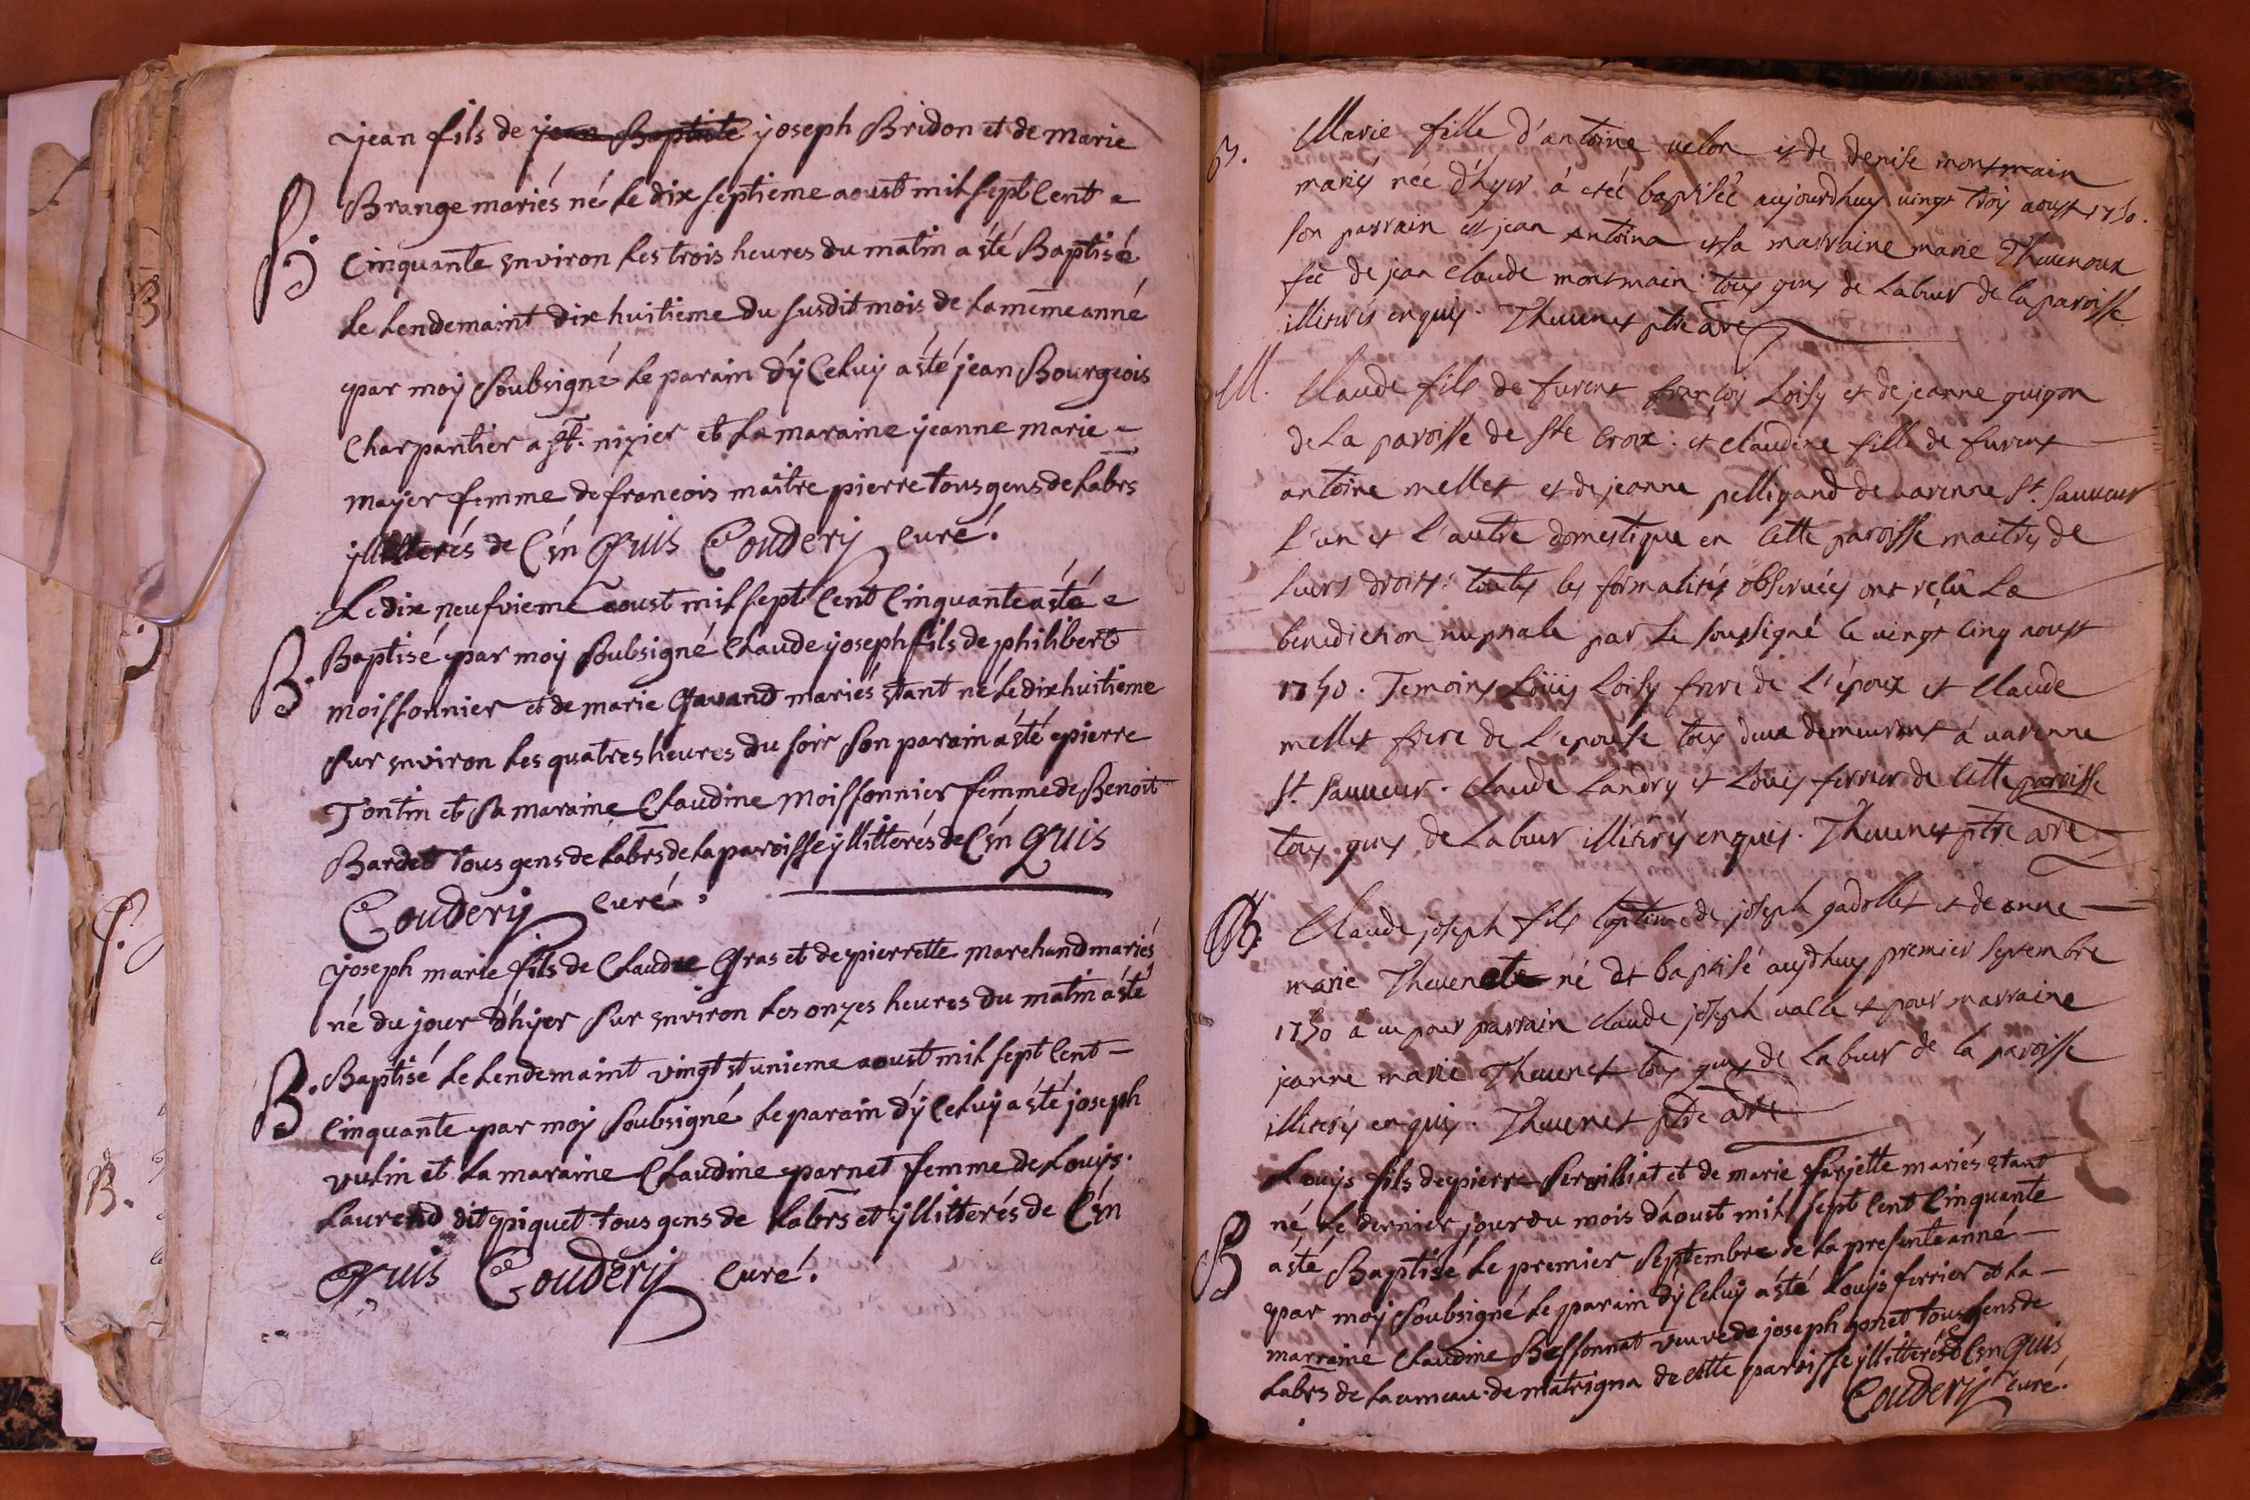 jean fils de jean Baptiste joseph Bridon et de marie
B. Brange mariés né le dix septieme aoust mil sept Cent
Cinquante environ les trois heures du matin a été Baptisé
le lendemaint dix huitieme du susdit mois de la meme anné
par moy soubsigné le parain dy Celuy a été jean Bourgeois
Charpantier a st. nizier et la maraine jeanne marie
mayer femme de francois maitre pierre tous gens de labrs
yllitterés de Cen Quis Coudery curé.
Le dix neufvieme aoust mil sept Cent Cinquante a été
B. Baptisé par moy soubsigné Claude joseph fils de philibert
moissonnier et de marie Gavand mariés etant né le dix huitieme
sur environ les quatres heures du soir son parain a été pierre
Tontin et sa maraine Claudine moissonnier femme de Benoit
Bardet tous gens de labrs de la paroisse yllitterés de Cen Quis
Coudery curé.
joseph marie fils de Claude Gras et de pierrette marchand mariés
né du jour d'hyer sur environ les onzes heures du matin a été
B. Baptisé le lendemaint vingt et unieme aoust mil sept Cent
Cinquante par moy soubsigné le parain dy Celuy a été joseph
vulin et la maraine Claudine parnet femme de Louys
Laurend dit piquet tous gens de labrs et yllitterés de Cen
Quis Coudery curé.
B. Marie fille d'antoine velon et de denise montmain
mariés née d'hyer á eteé baptiseé aujourdhuy vingt trois aoust 1750.
son parrain est jean antoina et sa marraine marie Thevenoux
fe de jean claude montmain: tous gens de labeur de la paroisse
illitérés enquis. Thevenet ptre
M. Claude fils de furent françois Loisy et de jeanne guigon
de La paroisse de Ste Croix: et claudine fille de furent
antoine mellet et de jeanne pelligand de varenne St. Sauveur
l'un et l'autre domestique en Cette paroisse maitres de
leurs droits: toutes les formalités observées ont reçû La
benediction nuptiale par Le soussigné le vingt cinq aoust
1750. Temoins Loüis Loisy frere de L'époux et Claude
mellet frere de L'epouse tous deux demeurant á varenne
St. Sauveur. Claude Landry et Loüis ferrier de Cette paroisse
tous gens de Labeur illitérés enquis. Thevenet ptre
B. Claude joseph fils légitime de joseph gadollet et de anne
marie Thevenet né et baptisé aujdhuy premier septembre
1750 a eu pour parrain claude joseph valle et pour marraine
jeanne marie Thevenet tous gens de Labeur de la paroisse
illiterés enquis. Thevenet ptre
Louys fils de pierre Servilliat et de marie farjette mariés etant
né le dernier jour du mois d'aoust mil sept Cent Cinquante
B a été Baptisé le premier septembre de la presente anné
par moy soubsigné le parain dy Celuy a été Louys ferrier et la
marraine Claudine Bessonnat veuve de joseph gonet tous gens de
labrs de laameau de matrigna de cette paroisse yllitterés de Cen Quis
Coudery curé.